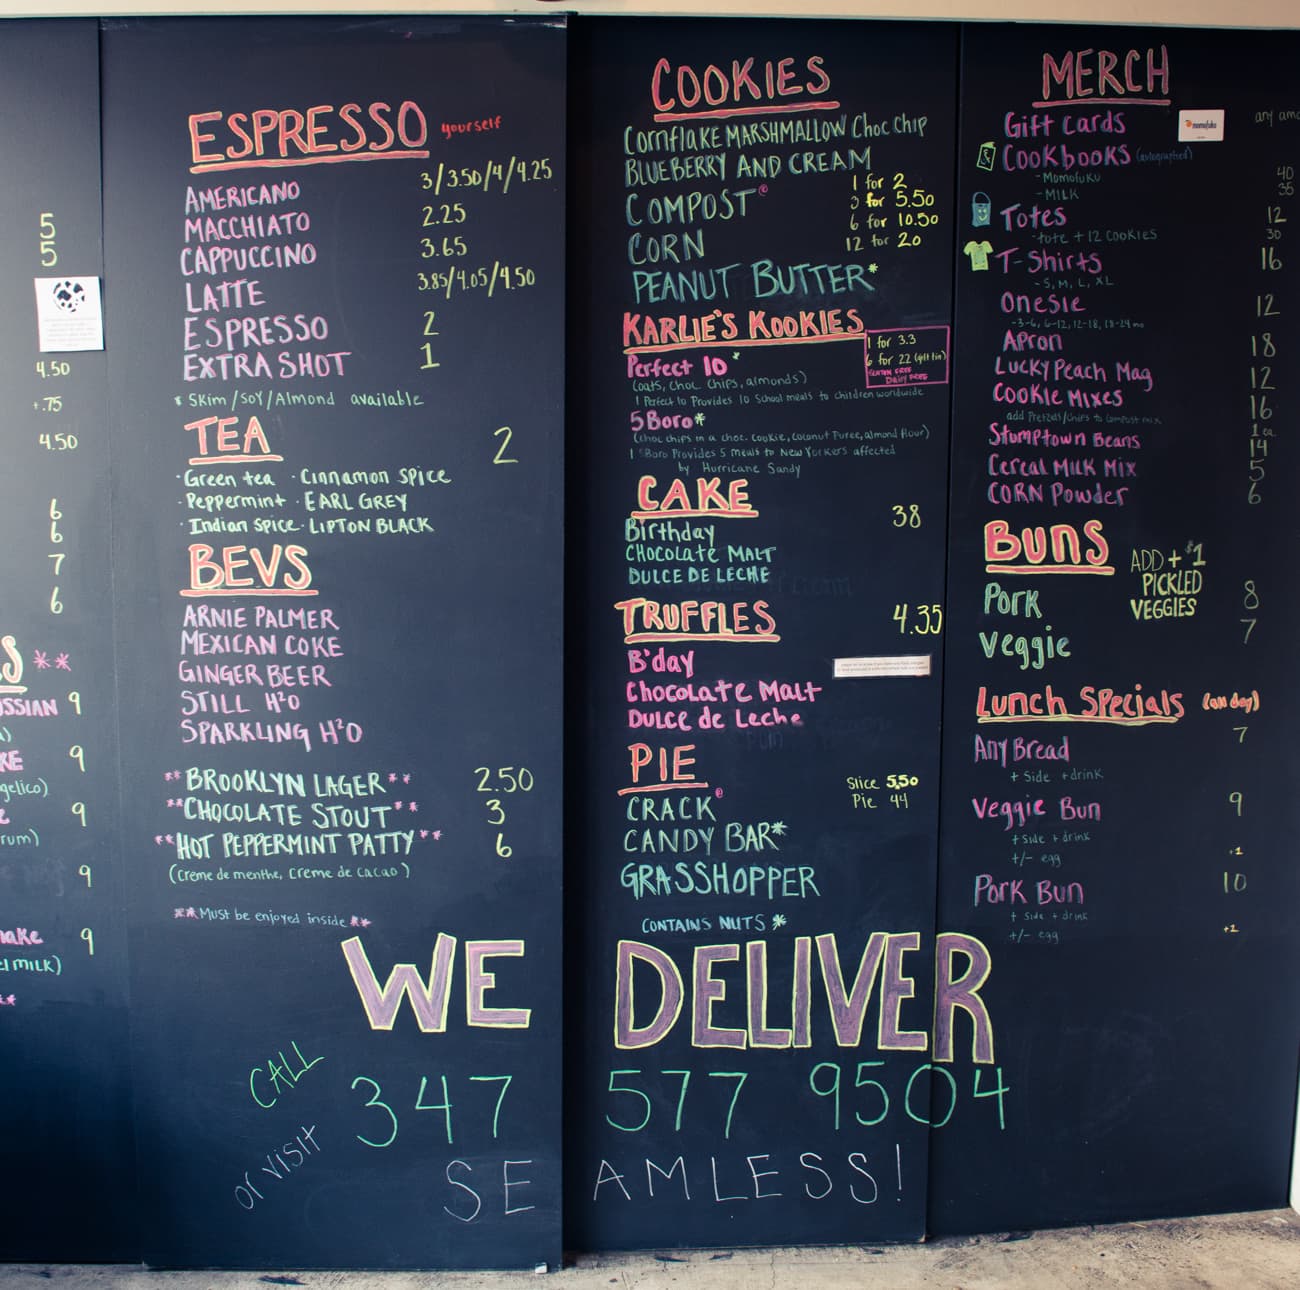 5
5
4.50
+.75
4.50
6
6
7
6
S **
SSIAN 9
)
KE 9
gelico)
e 9
rum)
9
hake 9
el MILK)
**
ESPRESSO yourself
AMERICANO 3/3.50/4/4.25
MACCHIATO 2.25
CAPPUCCINO 3.65
LATTE 3.85/4.05/4.50
ESPRESSO 2
EXTRA SHOT 1
* Skim/Soy/Almond available
TEA 2
· Green tea · Cinnamon Spice
· Peppermint · EARL GREY
· Indian Spice · LIPTON BLACK
BEVS
ARNIE PALMER
MEXICAN COKE
GINGER BEER
STILL H²O
SPARKLING H²O
** BROOKLYN LAGER ** 2.50
** CHOCOLATE STOUT ** 3
** HOT PEPPERMINT PATTY ** 6
(Creme de menthe, Creme de cacao)
** Must be enjoyed inside **
COOKIES
Cornflake MARSHMALLOW Choc Chip
BLUEBERRY AND CREAM
COMPOST® 1 for 2
3 for 5.50
6 for 10.50
CORN 12 for 20
PEANUT BUTTER*
KARLIE'S KOOKIES
1 for 3.3
6 for 22 (gift tin)
GLUTEN FREE
DAIRY FREE
Perfect 10 *
(oats, choc chips, almonds)
1 Perfect 10 Provides 10 School meals to children worldwide
5 Boro*
(choc chips in a choc. cookie, coconut Puree, almond flour)
1 5Boro Provides 5 meals to New Yorkers affected
by Hurricane Sandy
CAKE 38
Birthday
CHOCOLATE MALT
DULCE DE LECHE
TRUFFLES 4.35
B'day
Chocolate Malt
Dulce de Leche
PIE
Slice 5.50
Pie 44
CRACK®
CANDY BAR*
GRASSHOPPER
CONTAINS NUTS *
MERCH
Gift Cards momofuku any amo
Cookbooks (autographed)
- Momofuku 40
- MILK 35
Totes 12
- tote + 12 COOKIES 30
T-Shirts 16
- S, M, L, XL
Onesie 12
- 3-6, 6-12, 12-18, 18-24 mo
Apron 18
Lucky Peach Mag 12
Cookie Mixes 16
add Pretzels/Chips to compost mix 1 ea
Stumptown Beans 14
Cereal Milk Mix 5
CORN Powder 6
BUNS
ADD + $1
PICKLED
VEGGIES
Pork 8
Veggie 7
Lunch Specials (all day)
Any Bread 7
+ Side + drink
Veggie Bun 9
+ Side + drink
+/- egg +1
Pork Bun 10
+ Side + drink
+/- egg +1
WE DELIVER
CALL 347 577 9504
or visit SEAMLESS!